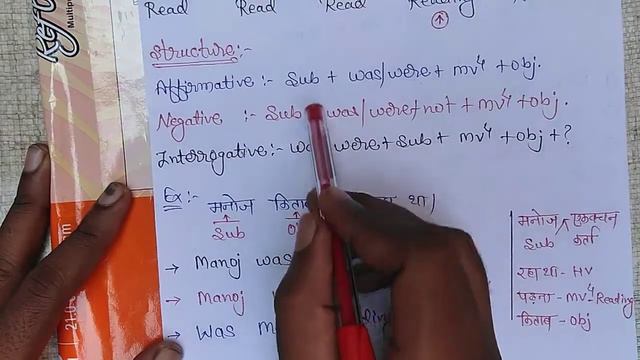 Read Read Read Reading
Structure:-
Affirmative:- Sub + was/were + mv⁴ + obj.
Negative :- Sub + was/were + not + mv⁴ + obj.
Interrogative:- were + Sub + mv⁴ + obj + ?
Ex:- मनोज था।
Sub
→ Manoj was
→ Manoj
→ Was
मनोज एकवचन
Sub कर्ता
रहा था - HV
पढ़ना - mv⁴ - Reading
किताब - obj